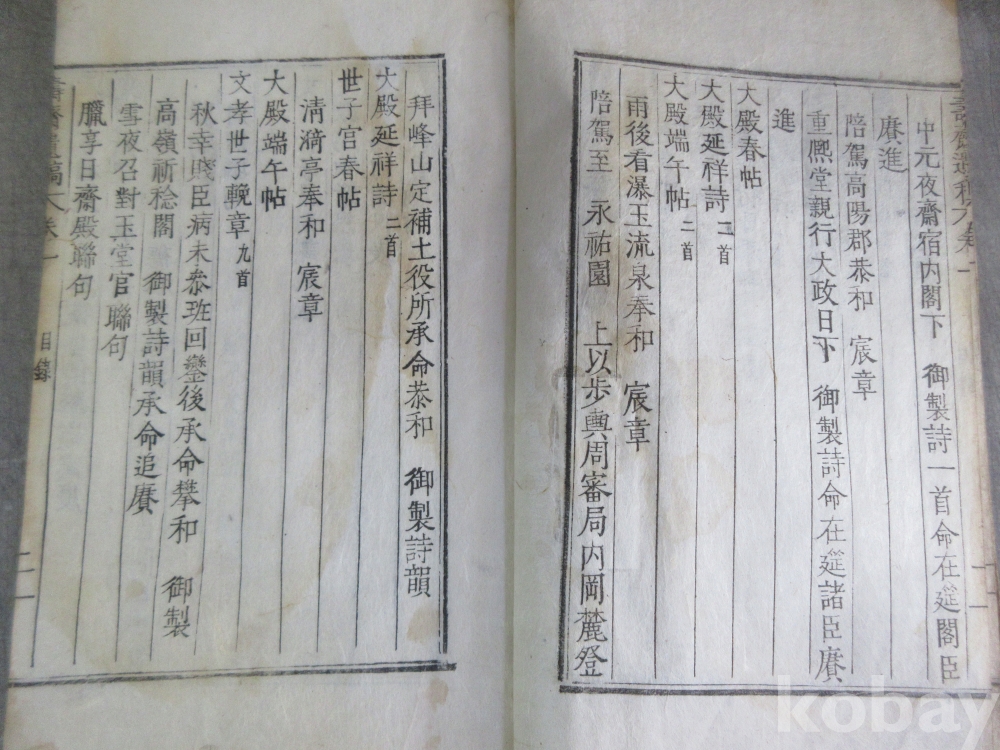 中元夜齋宿內閣下 御製詩一首命在筵閣臣
賡進
陪駕高陽郡恭和 宸章
重熙堂親行大政日下 御製詩命在筵諸臣賡
進
大殿春帖
大殿延祥詩二首
大殿端午帖二首
雨後看瀑玉流泉奉和 宸章
陪駕至 永祐園 上以步輿周審局內岡麓登
拜峰山定補土役所承命恭和 御製詩韻
大殿延祥詩二首
世子宮春帖
淸漪亭奉和 宸章
大殿端午帖
文孝世子輓章九首
秋幸賤臣病未叅班回鑾後承命攀和 御製
高嶺祈稔閣 御製詩韻承命追賡
雪夜召對玉堂官聯句
臘享日齋殿聯句
目錄
kobay